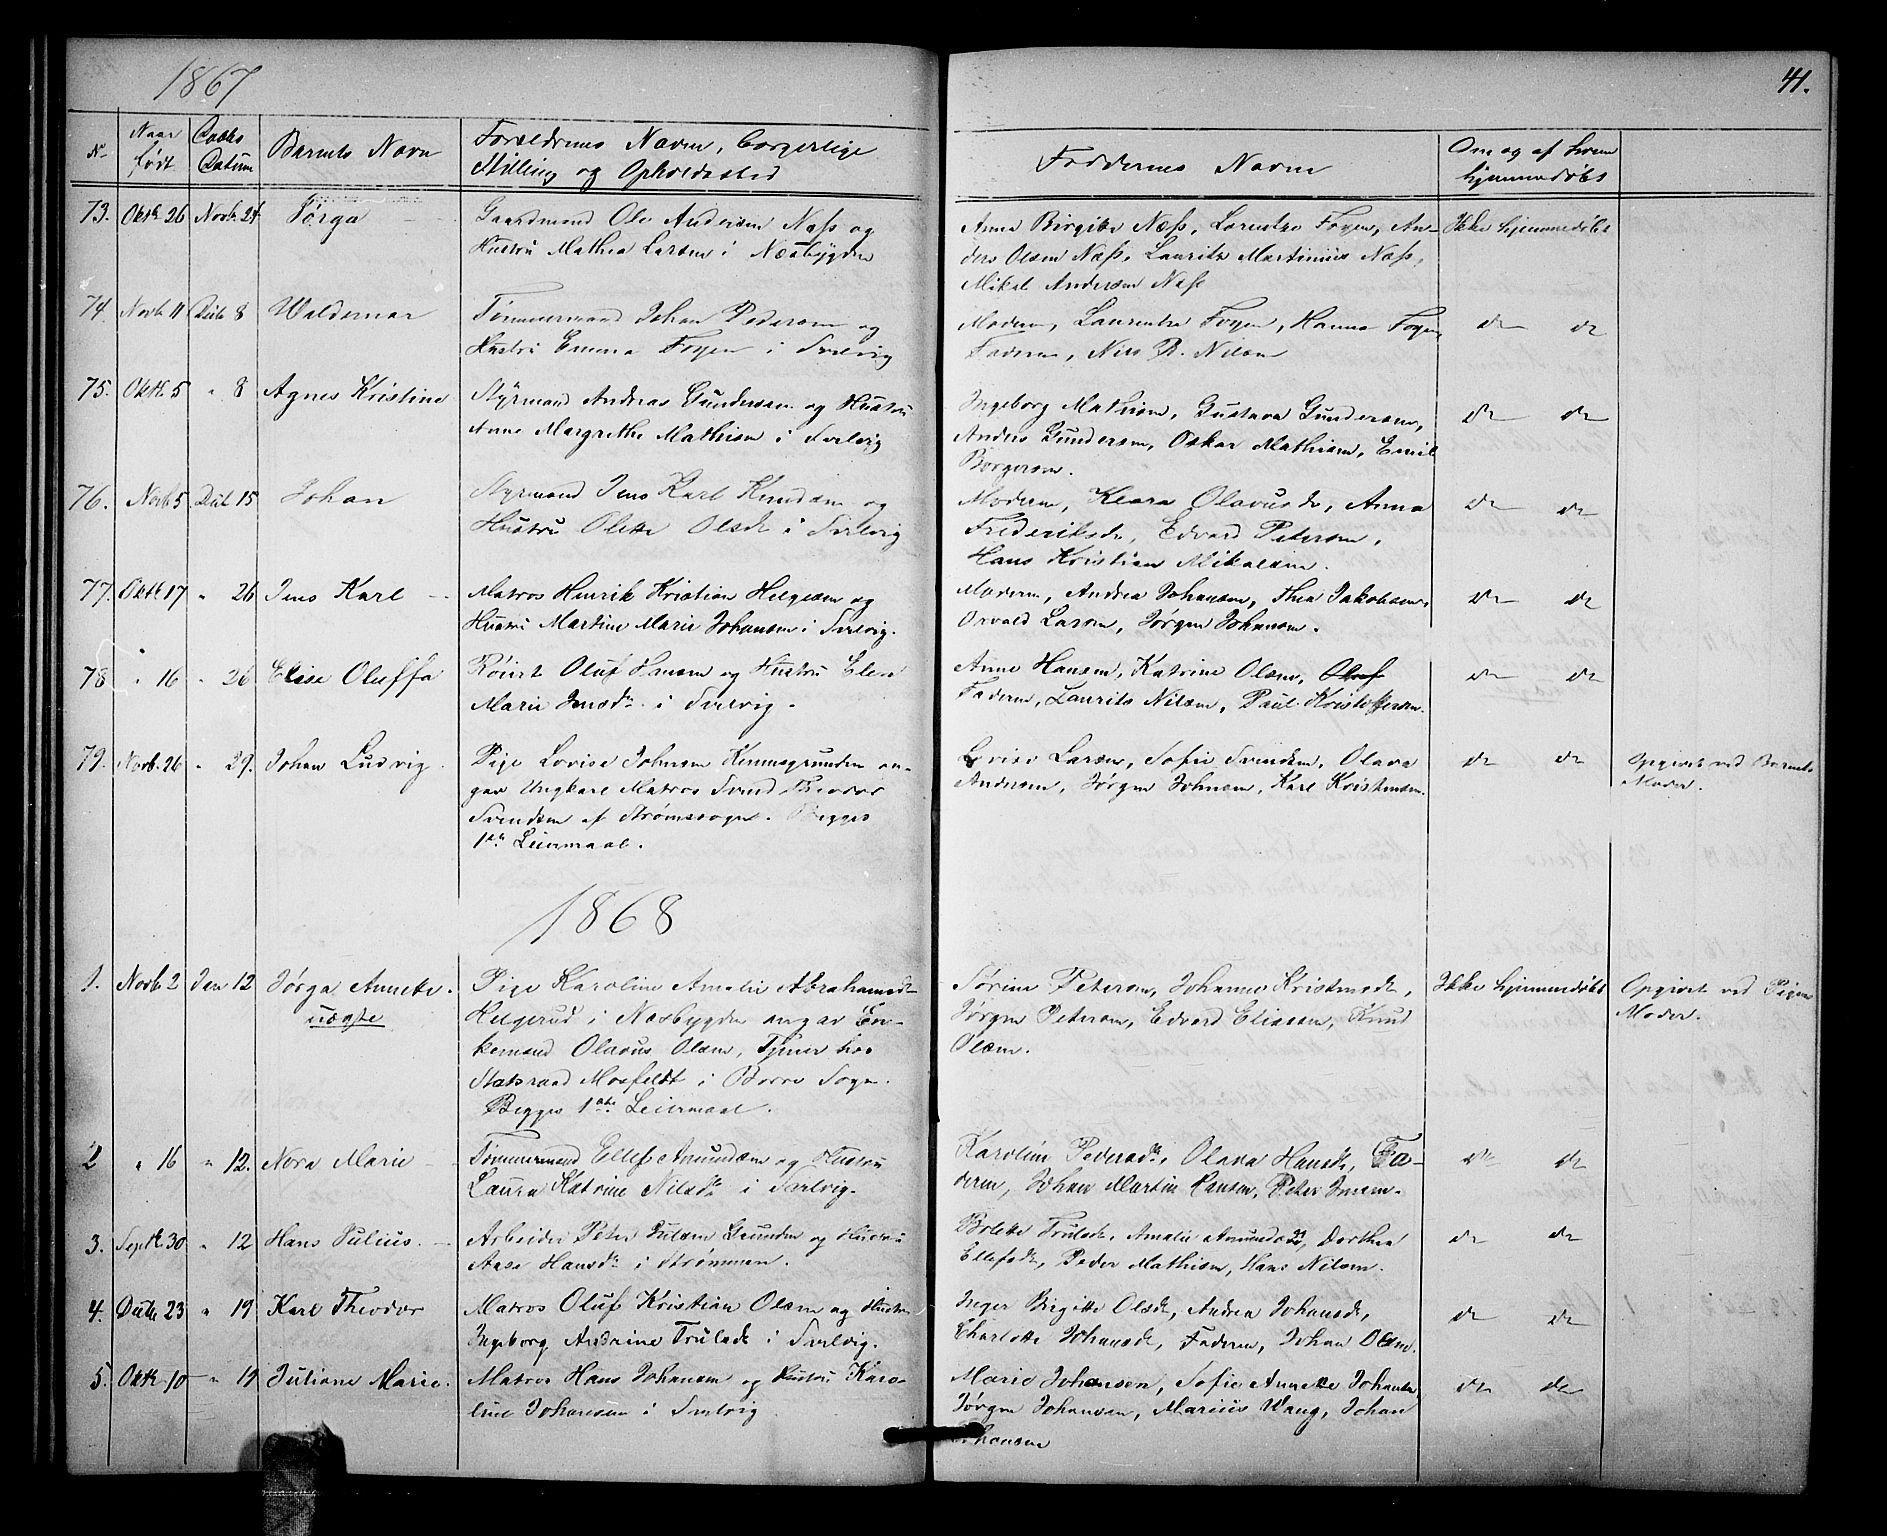 1867
41.
N.
Naar født
Daabs Datum
Barnets Navn
Forældrenes Navne, borgerlige
Stilling og Opholdssted
Faddernes Navne
Om og af hvem
hjemmedøbt
73. Oktb 26 Novb. 24. Jørga
Gaardmand Ole Andersen Næss og
Hustru Mathea Larsen i Næsbygden
Anna Birgitte Næss, Laurentze Foyen, An-
ders Olsen Næss, Lauritz Martinius Næss,
Mikal Andersen Næss
Ikke hjemmedøbt
74. Novb 11 Decb 8 Waldemar
Tømmermand Johan Pedersen og
Hustru Emma Foyen i Svelvig
Moderen, Laurentze Foyen, Hanna Foyen,
Faderen, Nils R. Nilsen
do do
75. Oktb. 5 " 8 Agnes Kristine
Styrmand Andreas Gundersen og Hustru
Anne Margrethe Mathisen i Svelvig
Ingeborg Mathisen, Gustava Gundersen,
Anders Gundersen, Oskar Mathisen, Emil
Borgersen.
do do
76. Novb 5 Decb 15 Johan
Styrmand Jens Karl Knudsen og
Hustru Olette Olsdr i Svelvig
Moderen, Klara Olavusdr, Anna
Frederiksdr, Edvard Petersen,
Hans Kristian Mikalsen.
do do
77. Oktb 17 " 26 Jens Karl
Matros Henrik Kristian Helgesen og
Hustru Martine Marie Johansen i Svelvig.
Moderen, Andrea Johansen, Thea Jakobsen,
Osvald Larsen, Jørgen Johansen.
do do
78 " 16 " 26 Elise Oluffa
Oluf Hansen og Hustru Elen
Marie Jensdr. i Svelvig.
Anne Hansen, Katrine Olsen, Oluf
Faderen, Laurits Nilsen, Paul Kristoffersen.
do do
79. Novb. 26 " 29. Johan Ludvig
Pige Lovise Johnsen an-
gav Ungkarl Matros Svend Theodor
Svendsen af Strømssogn. Begges
1ste Leiermaal.
Lovise Larsen, Sofie Svendsen, Olava
Andersen, Jørgen Johnsen, Karl Kristensen.
do do
Opgivet ved Barnets
Moder.
1868
1. Novb. 2 Jan 12 Jørga Annette.
uægte
Pige Karoline Amalie Abrahamsdr
Helgerud i Næsbygden angav En-
kemand Olavus Olsen, Tjener hos
Statsraad Mosfeldt i Borre Sogn.
Begges 1ste Leiermaal.
Sørine Petersen, Johanne Kristensdr,
Jørgen Petersen, Edvard Eliassen, Knud
Olsen.
Ikke hjemmedøbt
Opgivet ved Pigens
Moder.
2 " 16 " 12. Nora Marie
Tømmermand Ellef Amundsen og Hustru
Laura Katrine Nilsdr i Svelvig.
Karoline Pedersdr, Olava Hansdr, Fa-
deren, Johan Martin Hansen, Peter Jensen.
do do
3. Septb. 30 " 12 Hans Julius.
Arbeider Peter Grunden og Hustru
Aase Hansdr i Strømmen.
Bolette Trulsdr, Amalie Amundsen, Dorthea
Ellefsdr, Peder Mathisen, Hans Nilsen.
do do
4. Decb 23 " 19 Karl Theodor
Matros Oluf Kristian Olsen og Hustru
Ingeborg Andrine Trulsdr i Svelvig.
Inger Birgitte Olsdr, Andrea Johansdr,
Charlotte Johansdr, Faderen, Johan Olsen.
do do
5. Oktb 10 " 19 Juliane Marie.
Matros Hans Johansen og Hustru Karo-
line Johansen i Svelvig
Marie Johansen, Sofie Annette Johansen,
Jørgen Johansen, Marius Wang, Johan
Johansen
do do